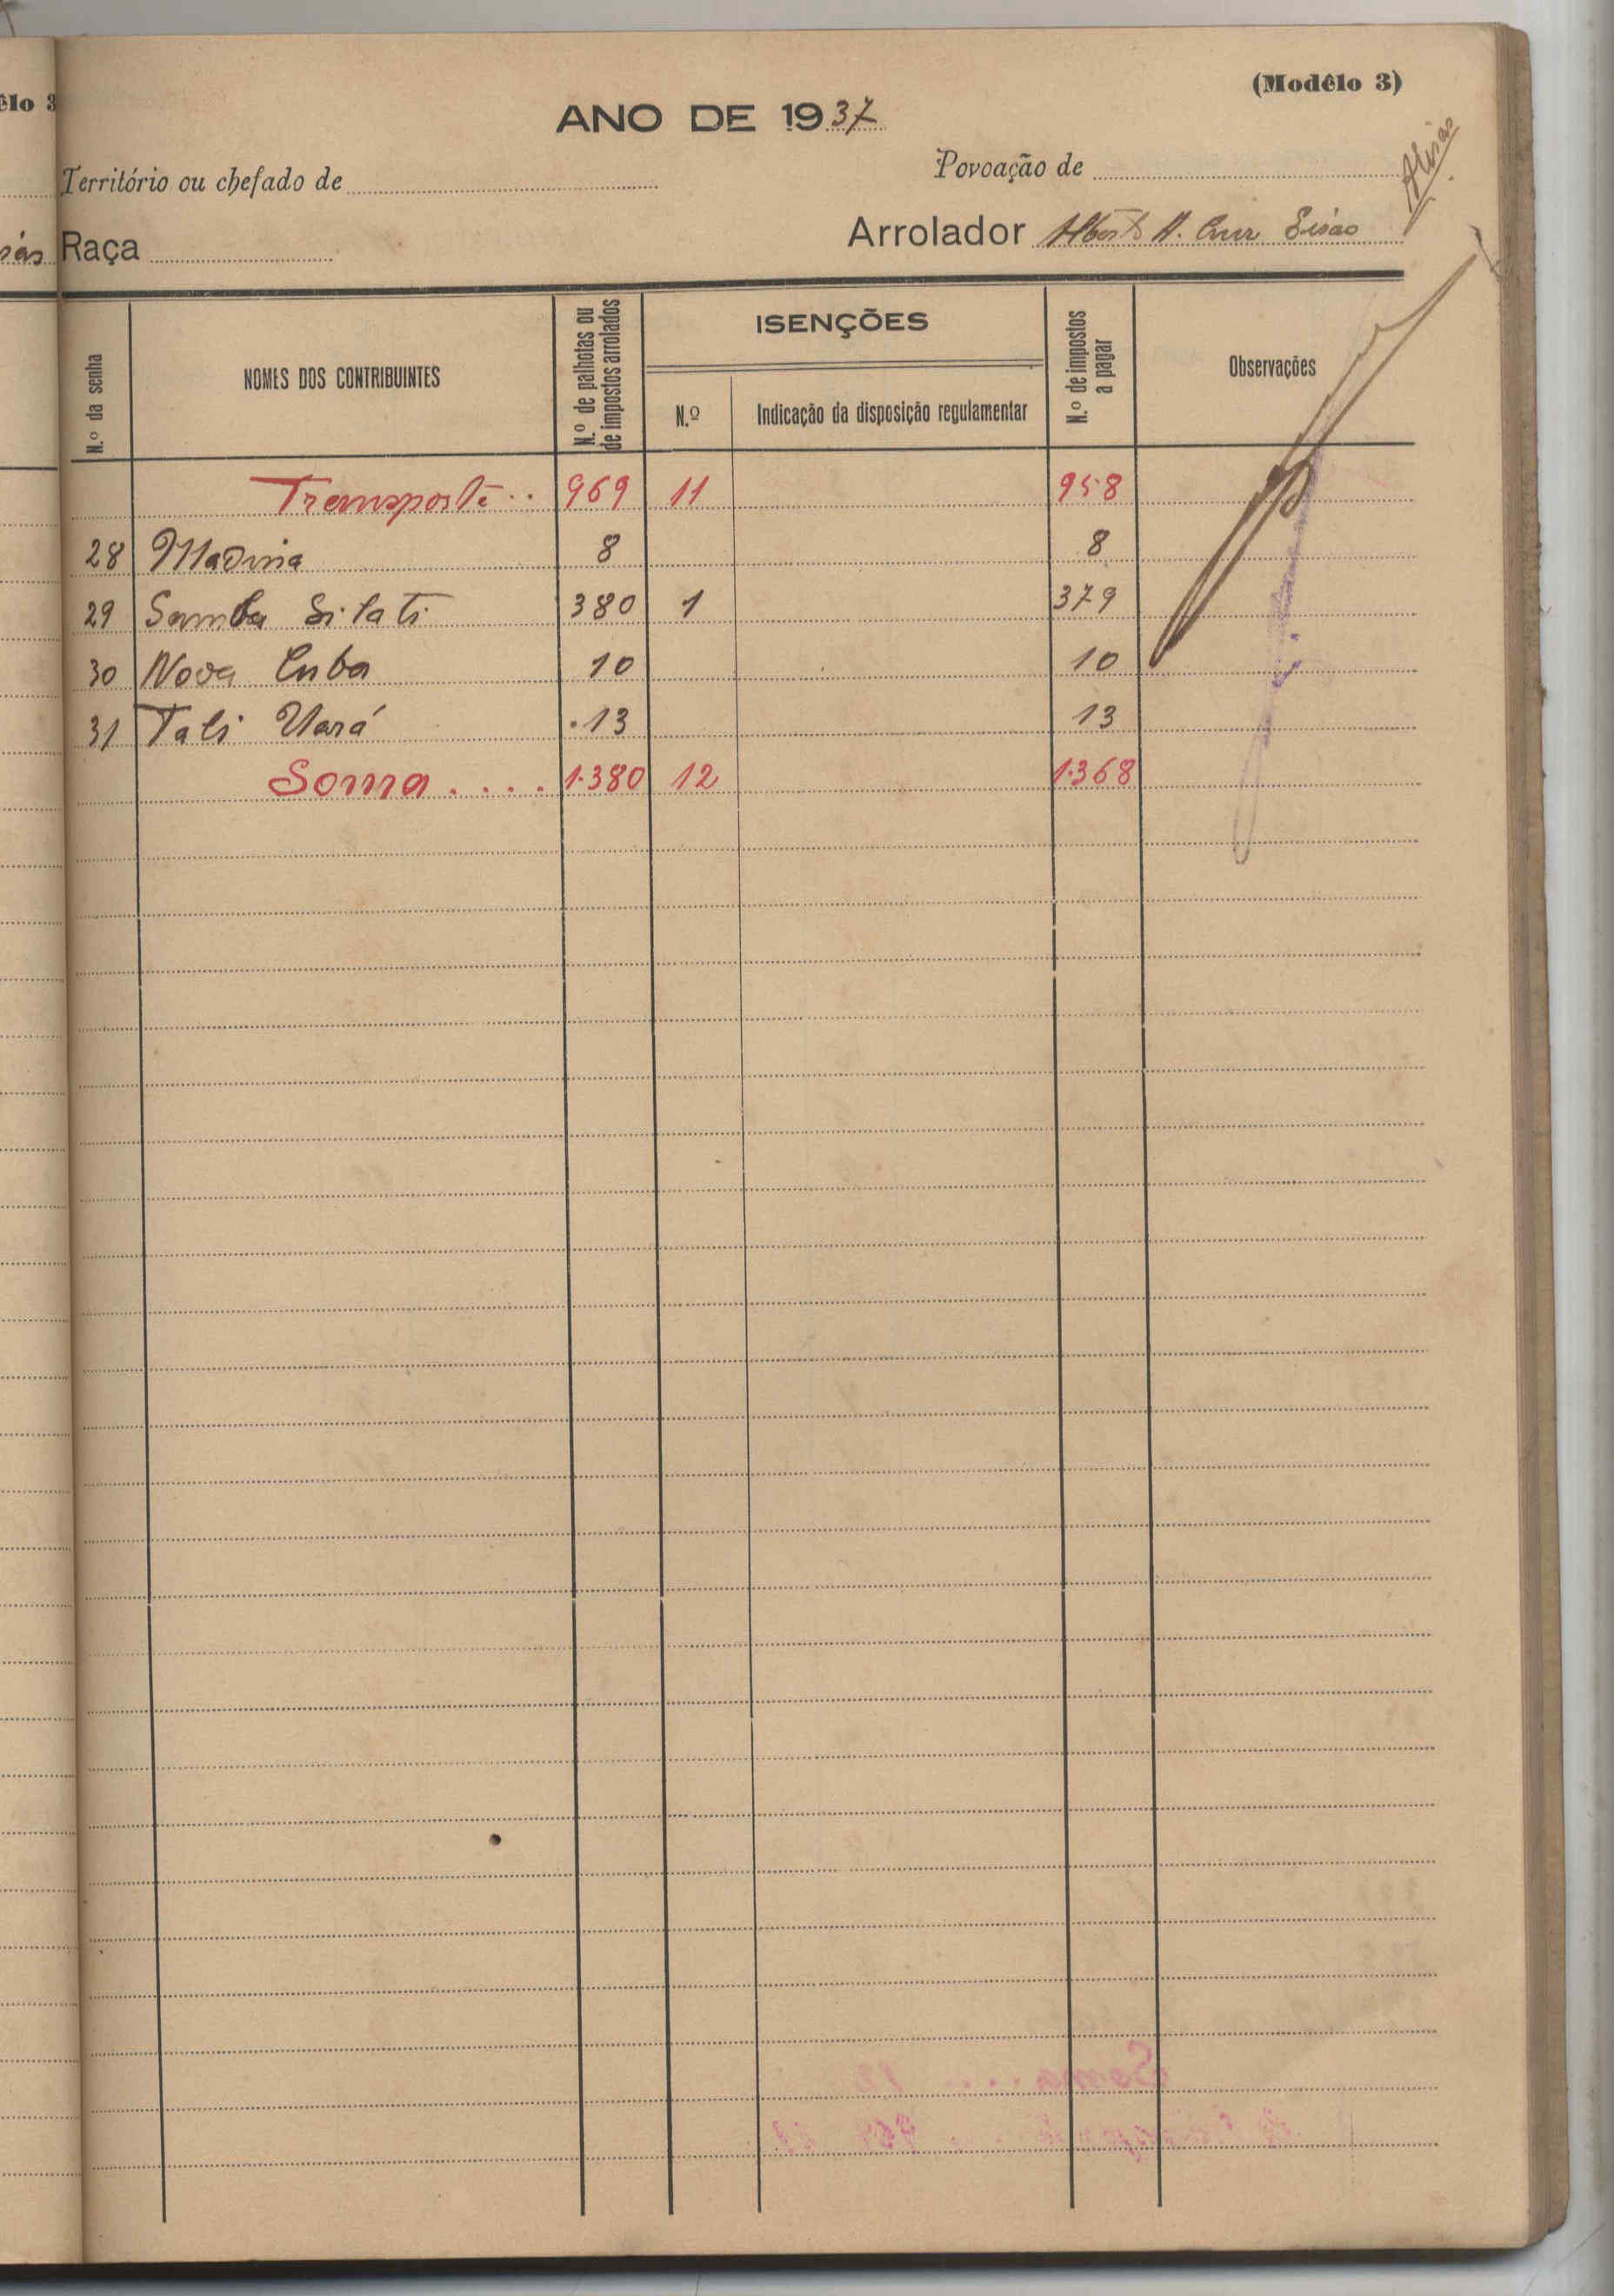 (Modêlo 3)
êlo 3
ANO DE 1937
Território ou chefado de
Povoação de
Raça
Arrolador Alberto A. Cruz
N.º da senha
NOMES DOS CONTRIBUINTES
N.º de palhotas ou de impostos arrolados
ISENÇÕES
N.º
Indicação da disposição regulamentar
N.º de impostos a pagar
Observações
Transporte .. 969 11 958
28 Madina 8 8
29 Samba Silati 380 1 379
30 Nova Cuba 10 10
31 Tali Uará 13 13
Soma .... 1.380 12 1.368